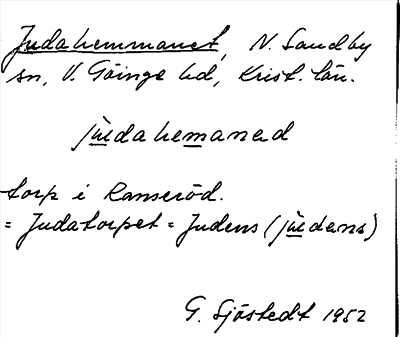 Judahemmanet, N. Sandby
sn, V. Göinge hd, Krist. län.
jüdahemaned
torp i Ranseröd.
= Judatorpet = Judens (jüdens)
G. Sjöstedt 1952